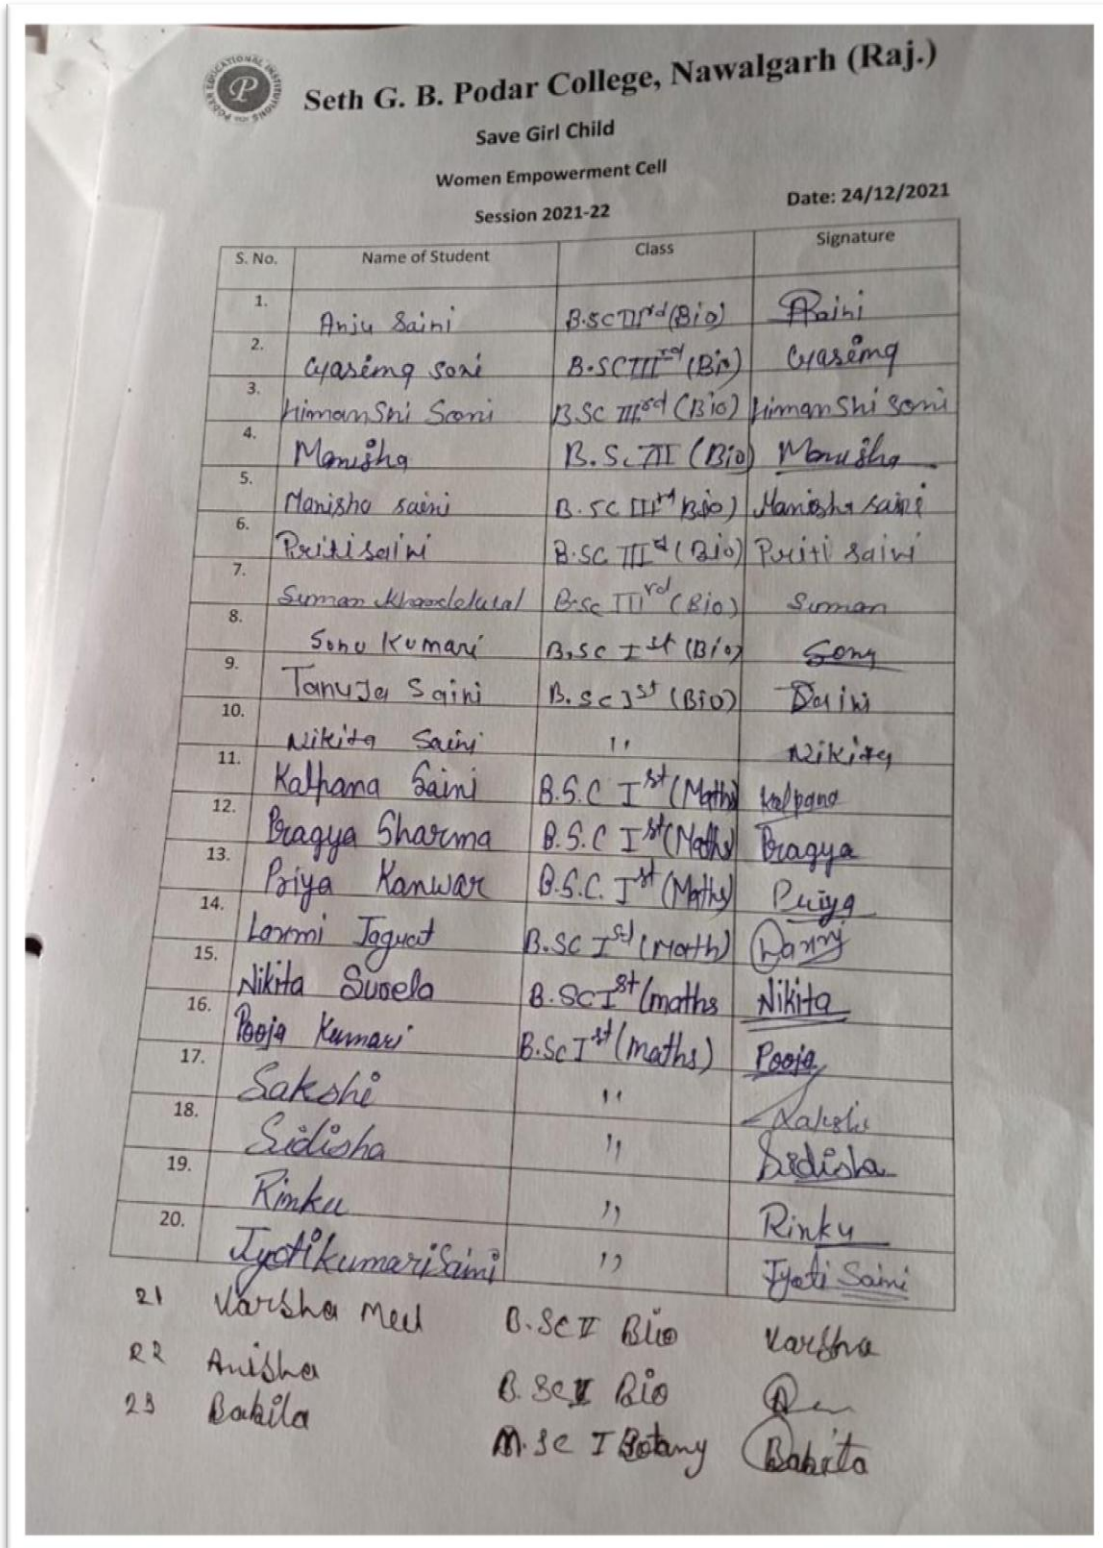 PODAR EDUCATIONAL INSTITUTIONS
P
Seth G. B. Podar College, Nawalgarh (Raj.)
Save Girl Child
Women Empowerment Cell
Session 2021-22 Date: 24/12/2021
S. No. Name of Student Class Signature
1. Anju Saini B.SC IIIrd (Bio) Saini
2. Gyasimq soni B.SC IIIrd (Bio) Gyasimq
3. Himanshi Soni B.SC IIIrd (Bio) Himanshi soni
4. Manisha B.Sc III (Bio) Manisha
5. Manisha saini B.SC IIIrd Bio) Manisha saini
6. Priti saini B.SC IIIrd (Bio) Priti saini
7. Suman B.Sc IIIrd (Bio) Suman
8. Sonu Kumari B.SC Ist (Bio) Sonu
9. Tanuja Saini B.SC Ist (Bio) Saini
10. Nikita Saini " Nikita
11. Kalpana Saini B.S.C Ist (Maths) Kalpana
12. Pragya Sharma B.S.C Ist (Maths) Pragya
13. Priya Kanwar B.S.C. Ist (Maths) Priya
14. Laxmi B.SC Ist (Math)
15. Nikita B.SC Ist (maths Nikita
16. Pooja Kumari B.Sc Ist (maths) Pooja
17. Sakshi " Sakshi
18. Sidisha " Sidisha
19. Rinku " Rinku
20. Jyoti kumari Saini " Jyoti Saini
21 Varsha Meel B.Sc II Bio Varsha
22 Anisha B.Sc II Bio
23 Babita M.Sc I Botany Babita